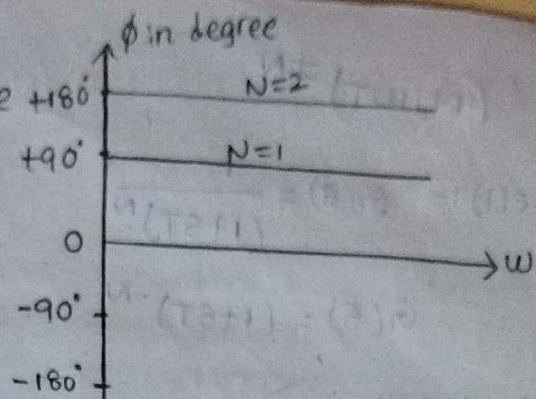 ϕ in degree
+180°
N=2
+90°
N=1
0
ω
-90°
-180°